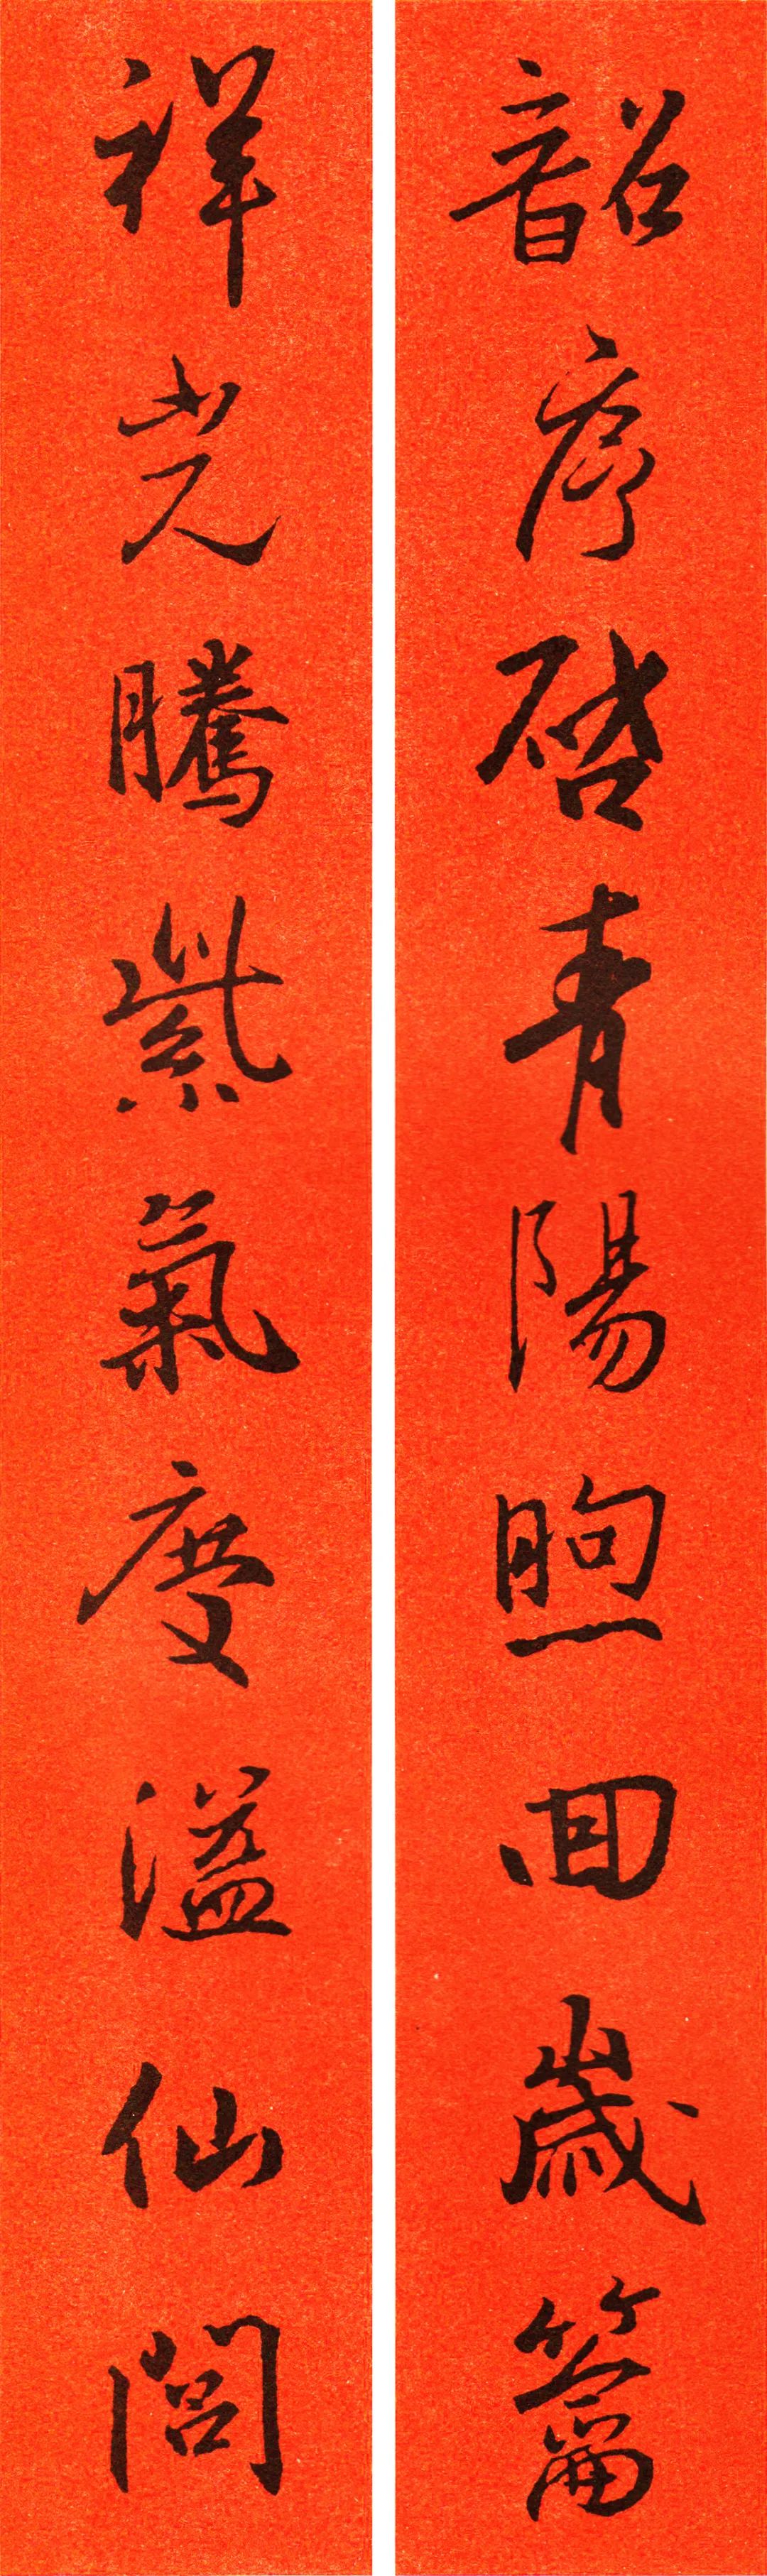 韶序啓青陽煦回歲籥
祥光騰紫氣慶溢仙閭